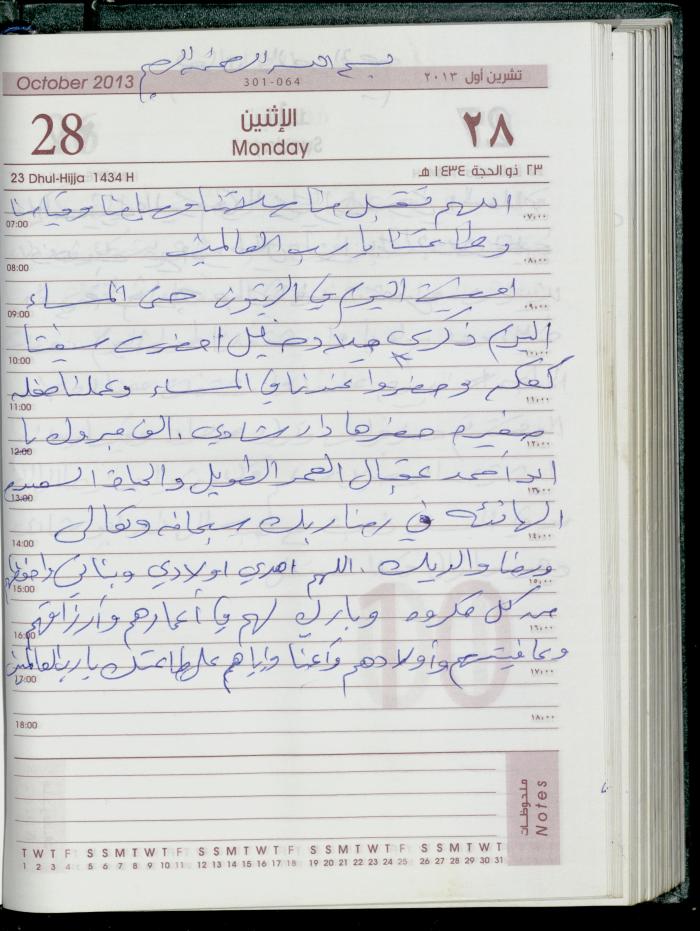 بسم الله الرحمن الرحيم
October 2013 301-064 تشرين أول ٢٠١٣
28 الإثنين ٢٨
Monday
23 Dhul-Hijja 1434 H ٢٣ ذو الحجة ١٤٣٤ هـ
اللهم تقبل منا صلاتنا وصيامنا وقيامنا
07:00 ٠٧:٠٠
وطاعتنا يا رب العالمين
08:00 ٠٨:٠٠
اليوم في الزيتون حتى المساء
09:00 ٠٩:٠٠
اليوم ذكرى ميلاد احضرت
10:00 ١٠:٠٠
كعكه وحضروا عندنا في المساء وعملنا حفله
11:00 ١١:٠٠
صغيره حضرها دار شادي. الف مبروك يا
12:00 ١٢:٠٠
ابو احمد عقبال العمر الطويل والحياة السعيده
13:00 ١٣:٠٠
الهانئه في رضا ربك سبحانه وتعالى
14:00 ١٤:٠٠
ورضا والديك. اللهم اهدي اولادي وبناتي واحفظهم
15:00 ١٥:٠٠
من كل مكروه وبارك لهم في أعمارهم وأرزاقهم
16:00 ١٦:٠٠
وعافيتهم وأولادهم وأعنا واياهم على طاعتك يا رب العالمين
17:00 ١٧:٠٠
18:00 ١٨:٠٠
ملاحظات
Notes
T W T F S S M T W T F S S M T W T F S S M T W T F S S M T W T
1 2 3 4 5 6 7 8 9 10 11 12 13 14 15 16 17 18 19 20 21 22 23 24 25 26 27 28 29 30 31